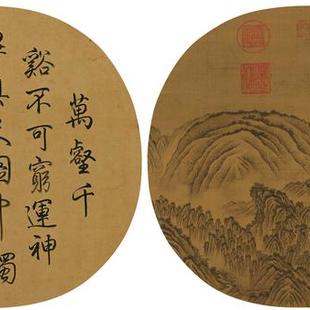 萬壑千
谿不可窮運神
具尺圖中獨